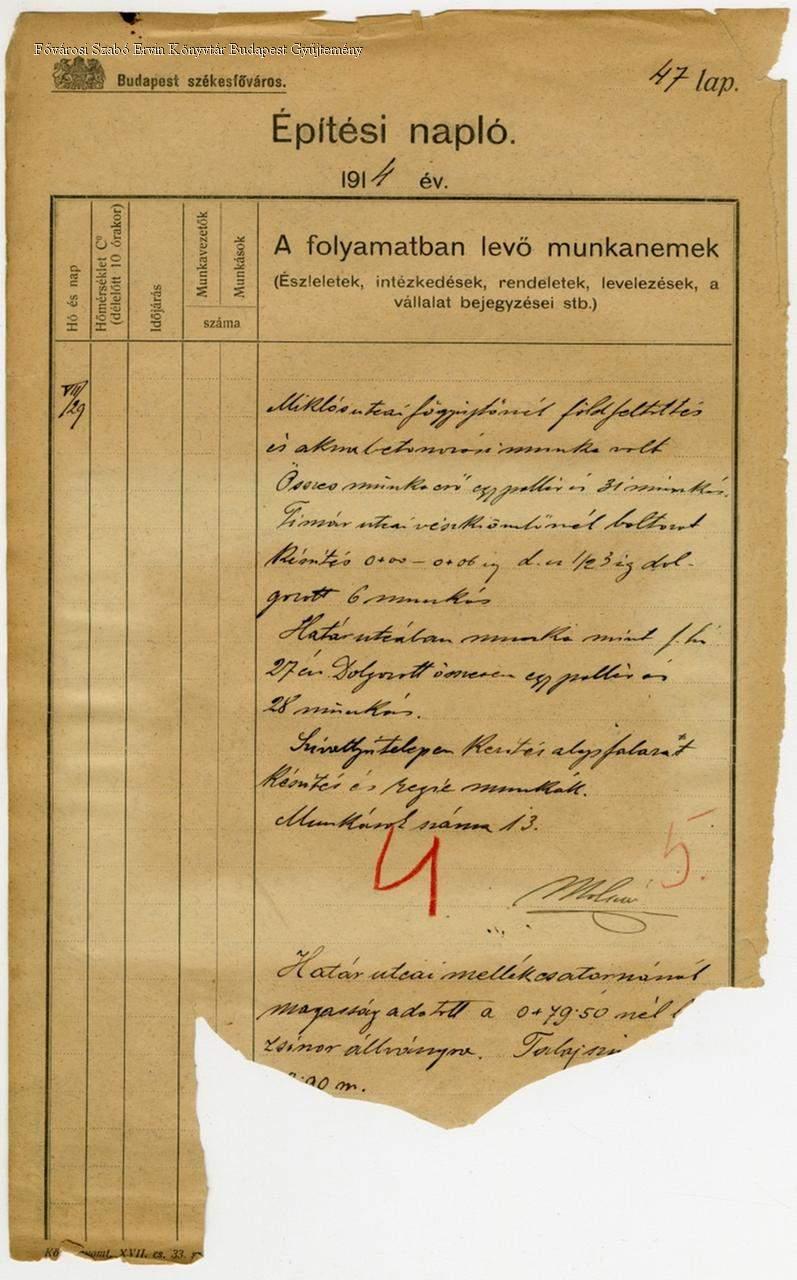 Fővárosi Szabó Ervin Könyvtár Budapest Gyűjtemény
Budapest székesfőváros.
47 lap.
Építési napló.
1914 év.
Hó és nap
Hőmérséklet C° (délelőtt 10 órakor)
Időjárás
Munkavezetők
Munkások
száma
A folyamatban levő munkanemek
(Észleletek, intézkedések, rendeletek, levelezések, a
vállalat bejegyzései stb.)
VII/29
Miklós utcai főgyűjtőnél földfeltöltés
és akna betonozási munka volt
Összes munkaerő egy pallér és 31 munkás.
Timár utcai vészkiömlőnél boltozat
készítés 0+00 – 0+06 ig d. u. 1/2 3 ig dol-
gozott 6 munkás
Határ utcában munka mint f. hó
27 én. Dolgozott összesen egy pallér és
28 munkás.
Szivattyútelepen kerítés alapfalazat
készítés és regie munkák.
Munkások száma 13.
4
5.
Határ utcai mellékcsatornánál
magasság adatott a 0+79.50 nél
zsinór állványra.
90 m.
XVII. cs. 33.